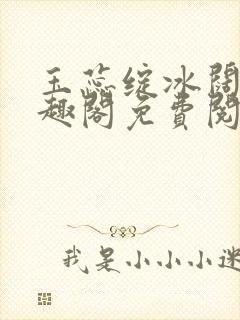 玉蕊绽冰阔
趣阁免费阅
我是小小小迷